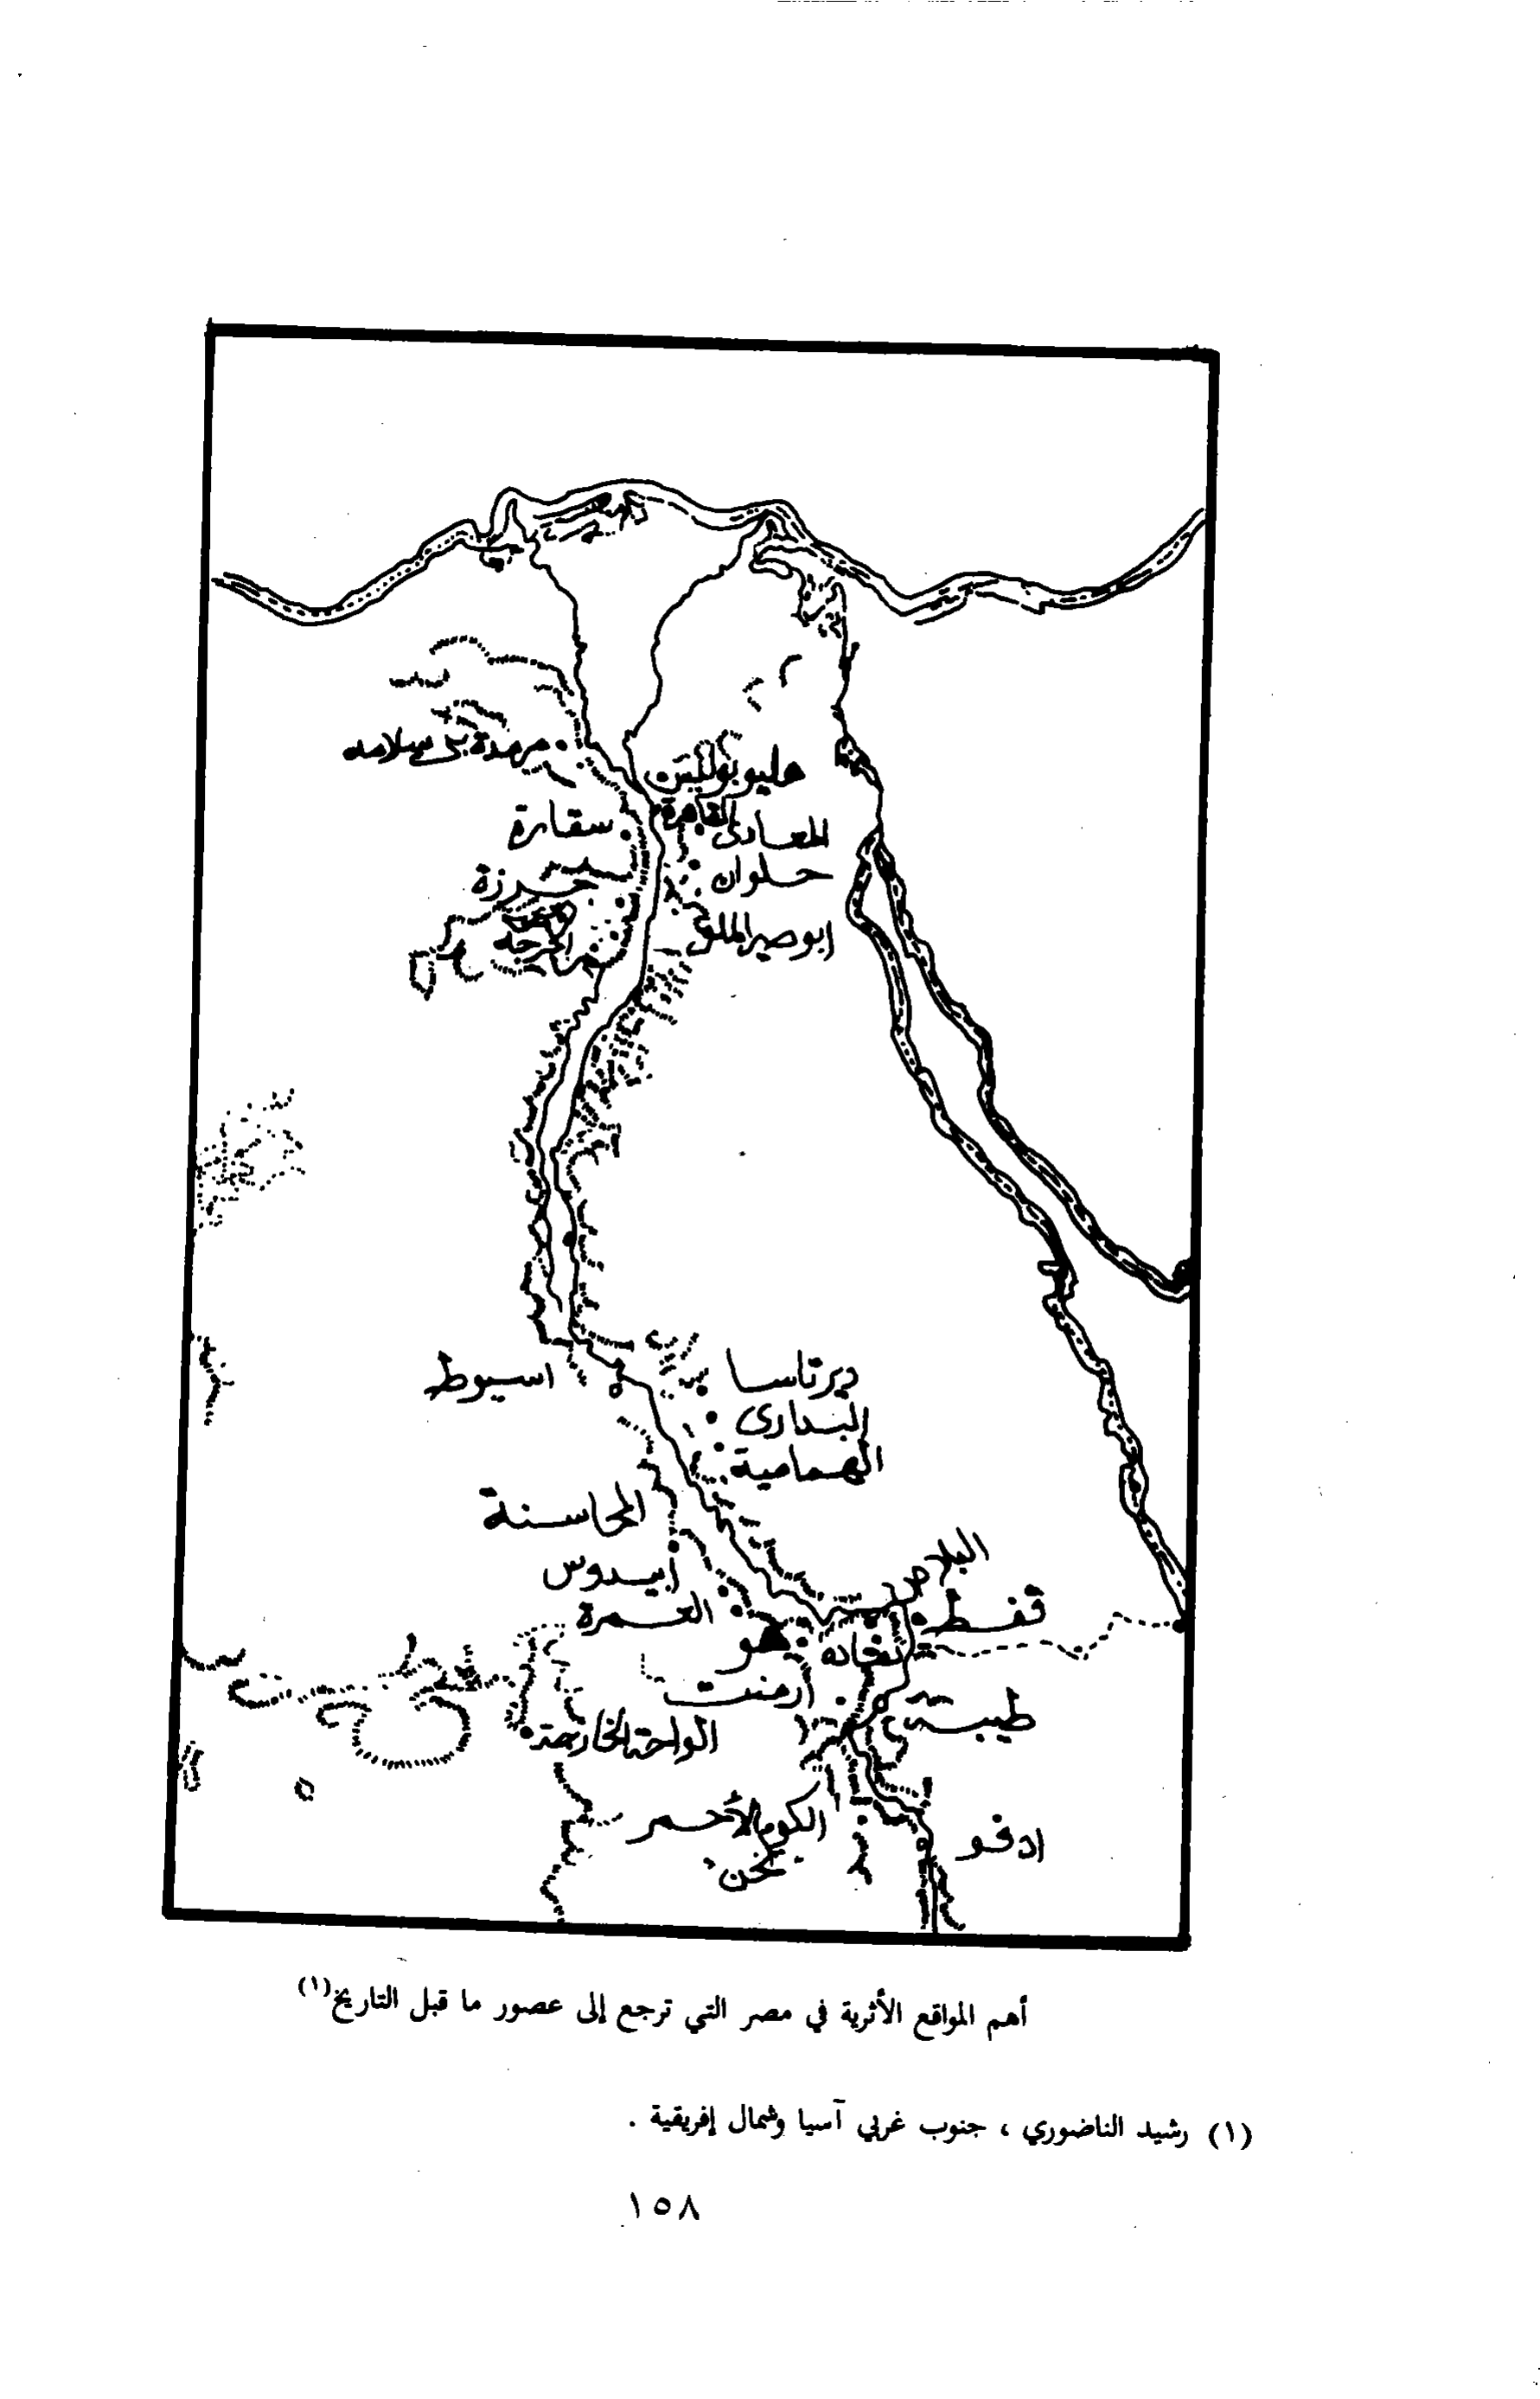 هليوبوليس
مرمدة بنى سلامه
القاهرة
المعادى
سقارة
حلوان
جرزة
ابوصير الملق
الجرحه
اسيوط
ديرتاسا
البدارى
الهمامية
المحاسنة
ابيدوس
البلاص
العمرة
قفط
هو
نقاده
ارمنت
طيبة
الواحة الخارجة
الكوم الأحمر
نخن
ادفو
أهم المواقع الأثرية في مصر التي ترجع إلى عصور ما قبل التاريخ(١)
(١) رشيد الناضوري ، جنوب غربي آسيا وشمال إفريقية .
١٥٨